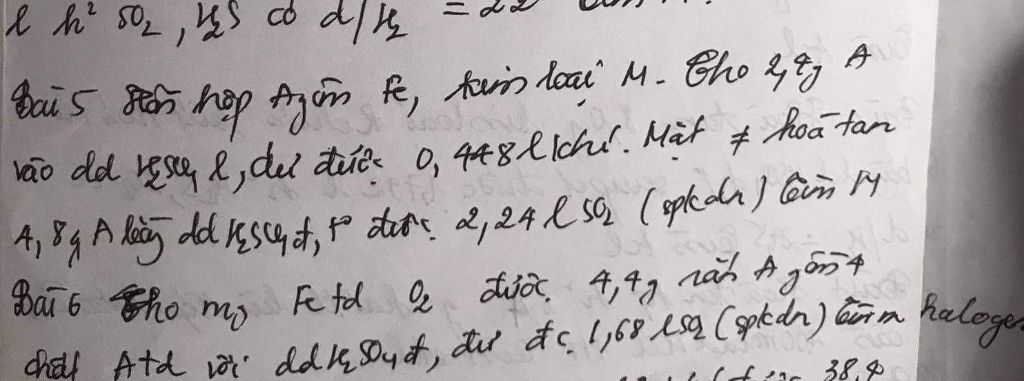 l h² SO₂, H₂S có d/H₂ = 22
Bài 5 Hỗn hợp A gồm Fe, kim loại M. Cho 2,4g A
vào dd H₂SO₄ l, dư được 0,448 l khí. Mặt ≠ hoà tan
4,8g A bằng dd H₂SO₄ đ, t° được 2,24 l SO₂ (spkdn) Tìm M
Bài 6 Cho mg Fe td O₂ được 4,4g rắn A gồm 4
chất A td với dd H₂SO₄ đ, dư đc 1,68 l SO₂ (spkdn) Tìm m halogen
38,4